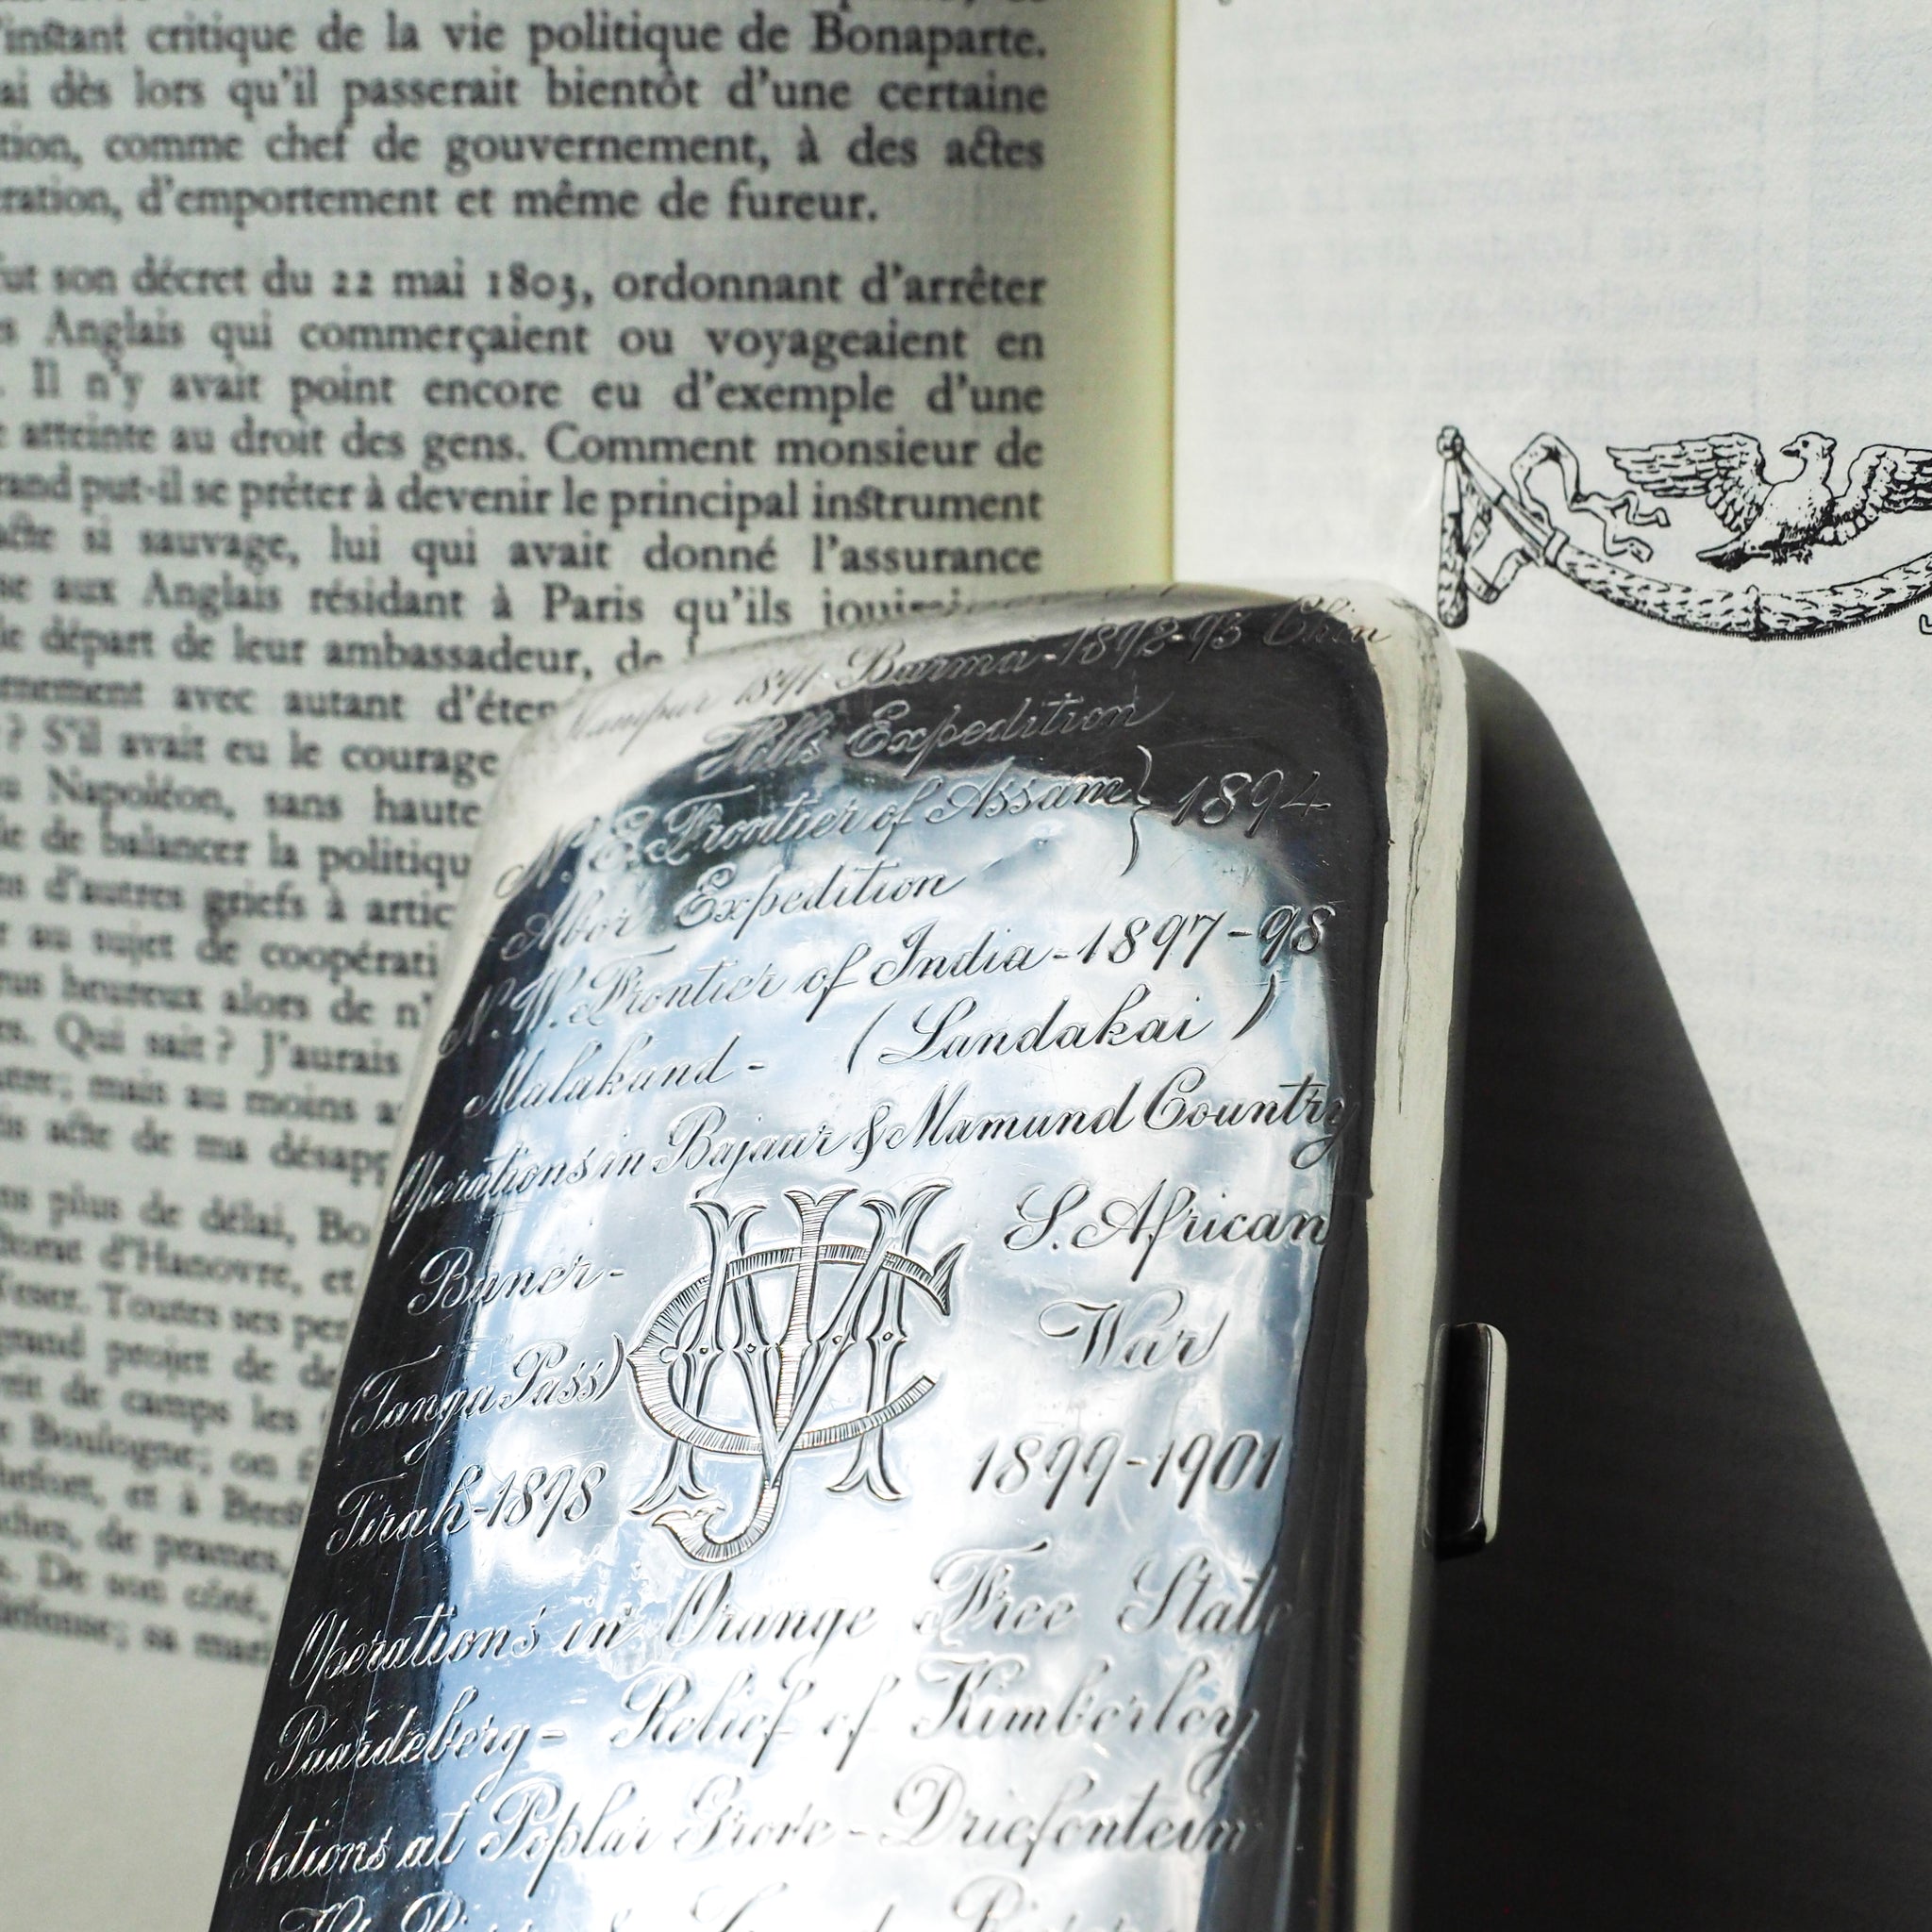 'instant critique de la vie politique de Bonaparte.
ai dès lors qu'il passerait bientôt d'une certaine
tion, comme chef de gouvernement, à des actes
ration, d'emportement et même de fureur.
fut son décret du 22 mai 1803, ordonnant d'arrêter
s Anglais qui commerçaient ou voyageaient en
. Il n'y avait point encore eu d'exemple d'une
e atteinte au droit des gens. Comment monsieur de
rand put-il se prêter à devenir le principal instrument
acte si sauvage, lui qui avait donné l'assurance
se aux Anglais résidant à Paris qu'ils
le départ de leur ambassadeur, de
rnement avec autant d'éten
? S'il avait eu le courage
u Napoléon, sans haute
le de balancer la politiqu
ns d'autres griefs à artic
r au sujet de coopérati
rus heureux alors de n'
es. Qui sait ? J'aurais
utre; mais au moins a
tis acte de ma désapp
ns plus de délai, Bo
ctorat d'Hanovre, et
Weser. Toutes ses pe
grand projet de de
voit de camps les
e Boulogne; on f
chefort, et à Brest
ches, de prames,
. De son côté,
défense; sa mari
Manipur 1891-Burma-1892-93 Chin
Hills Expedition
N.E. Frontier of Assam } 1894
Abor Expedition
N.W. Frontier of India-1897-98
Malakand - (Landakai)
Operations in Bajaur & Mamund Country
Buner-
(Tanga Pass)
Tirah-1898
S. African
War
1899-1901
Operations in Orange Free State
Paardeberg - Relief of Kimberley
Actions at Poplar Grove - Driefontein